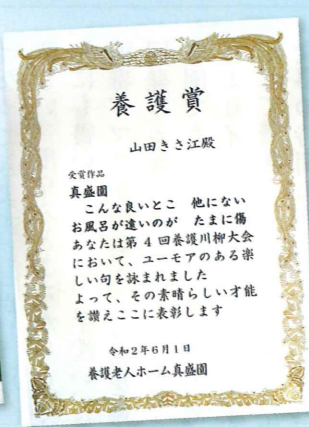 養護賞
山田きさ江殿
受賞作品
真盛園
こんな良いとこ 他にない
お風呂が遠いのが たまに傷
あなたは第4回養護川柳大会
において、ユーモアのある楽
しい句を詠まれました
よって、その素晴らしい才能
を讃えここに表彰します
令和2年6月1日
養護老人ホーム真盛園